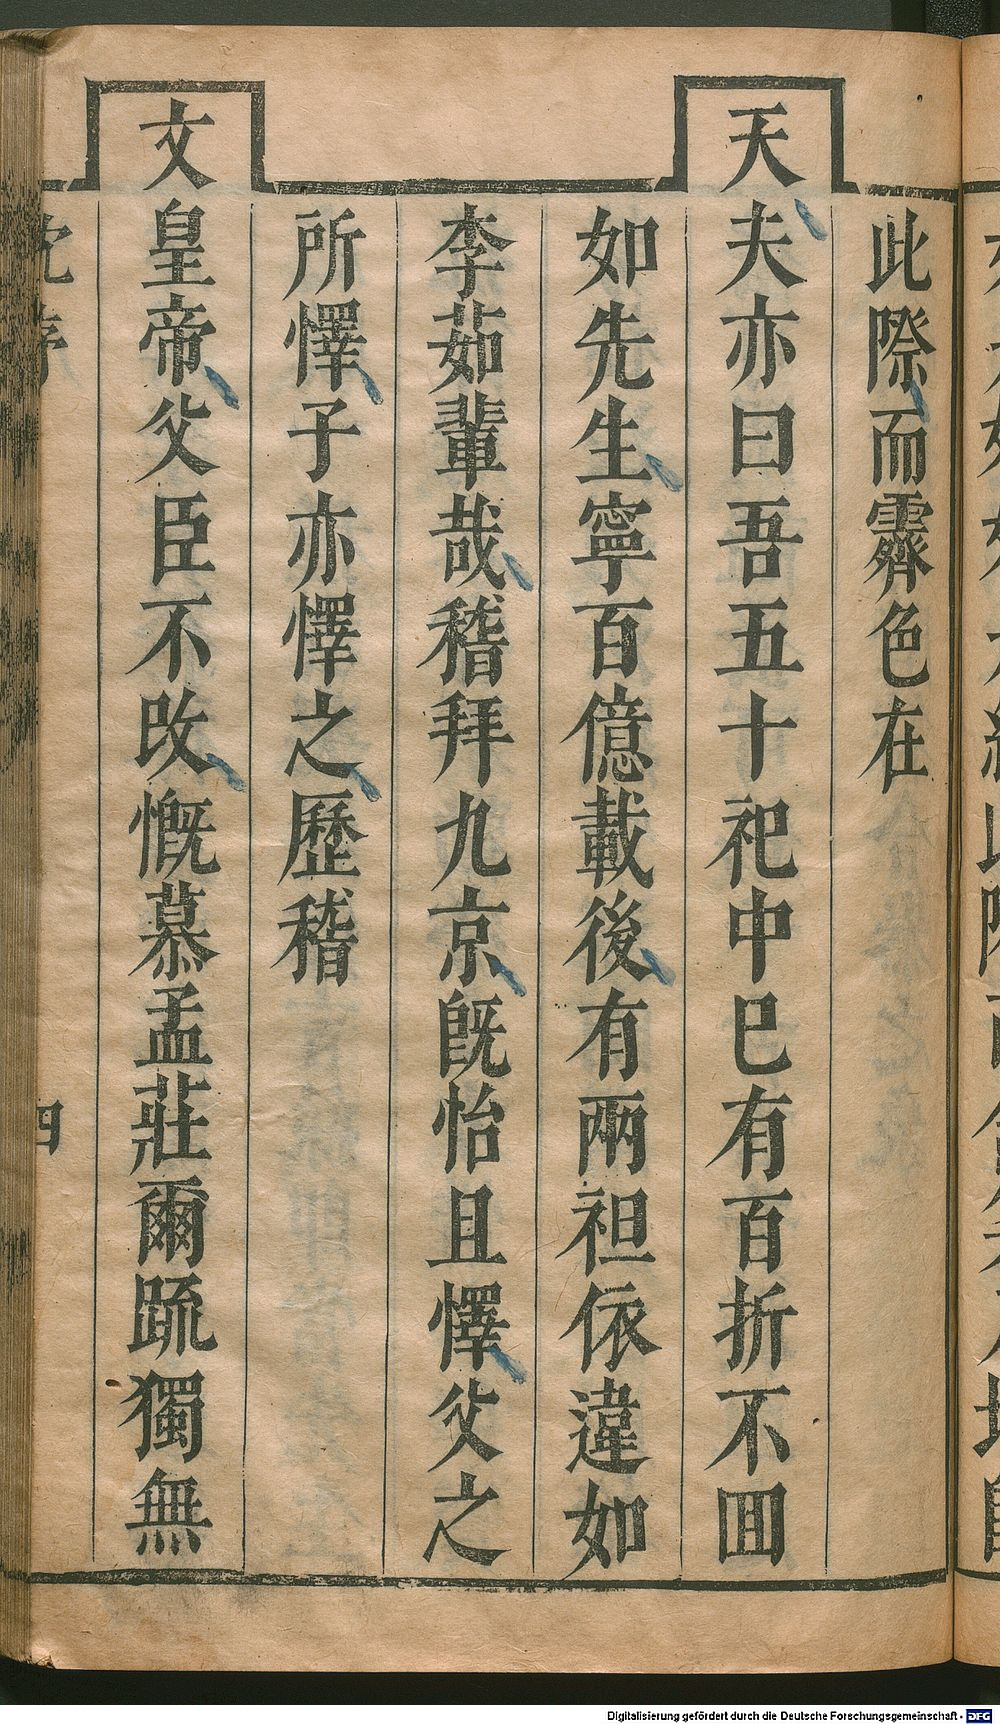 此際而霽色在
天夫亦曰吾五十祀中巳有百折不囬
如先生寧百億載後有兩袒依違如
李茹輩哉稽拜九京旣怡且懌父之
所懌子亦懌之歷稽
文皇帝父臣不改慨慕孟莊爾䟽獨無
四
Digitalisierung gefördert durch die Deutsche Forschungsgemeinschaft - DFG